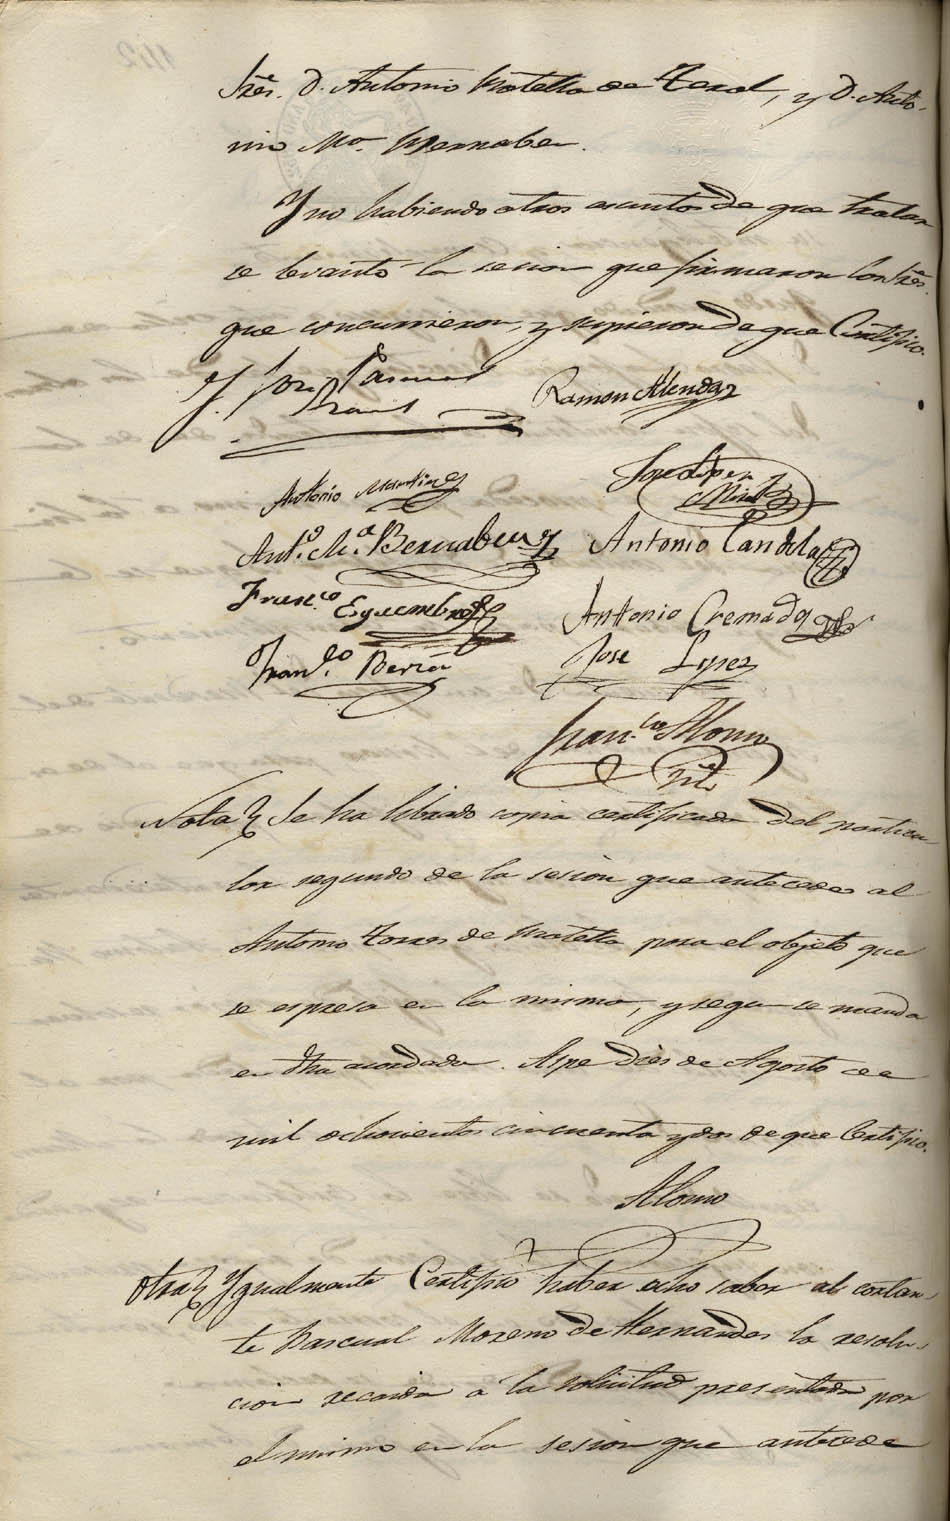 Sres. D. Antonio Botella de Teral, y D. Anto-
nio Ma. Bernabeu.
Y no habiendo otros asuntos de que tratar
se levantó la sesion que firmaron los Sres.
que concurrieron, y supieron de que Certifico.
Y. Jose Pascual
Ramon Alenda
Antonio Martinez
Jose Lopez
Mira
Anto. Ma. Bernabeu y
Antonio Candela
Franco. Esquembre
Antonio Cremades
Franco. Beria
Jose Lopez
Franco. Alonso
Srio
Nota Se ha librado copia certificada del particu
lar segundo de la sesion que antecede al
Antonio Torres de Botella para el objeto que
se espresa en la misma, y segun se manda
en dha acordada. Aspe Dies de Agosto de
mil ochocientos cincuenta y dos de que Certifico.
Alonso
Otra Ygualmente Certifico haber echo saber al cortan-
te Pascual Moreno de Hernandes la resolu-
cion recaida a la solicitud presentada por
el mismo en la sesion que antecede